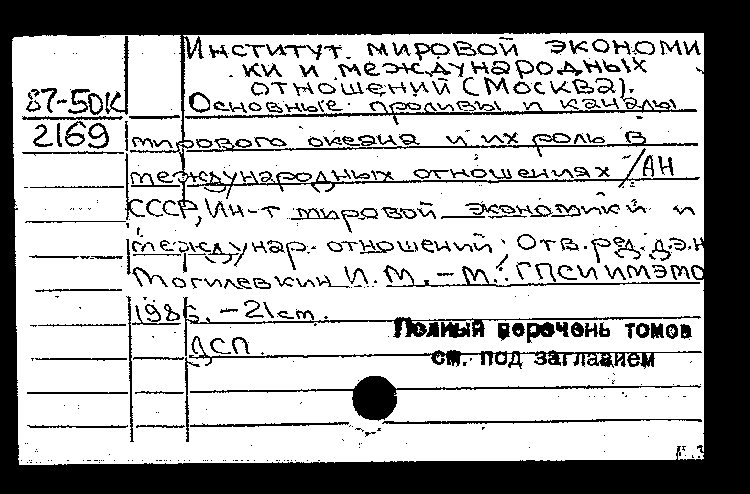 Институт мировой экономи
ки и международных
отношений (Москва).
87-5DК Основные проливы и каналы
2169 мирового океана и их роль в
международных отношениях /АН
СССР, Ин-т мировой экономики и
междунар. отношений; Отв. ред. д.э.н
Могилевкин И.М. – М.: ГПСИ ИМЭМО
1986. – 21 см.
ДСП.
Полный перечень томов
см. под заглавием